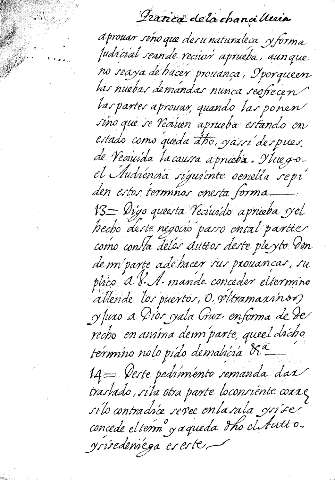 Pratica de la chancilleria
aprovar sino que de su naturaleca y forma
Judicial se an de reciuir aprueba, aunque
no se aya de hacer provança, Y porque en
las nuebas demandas nunca se ofrecen
las partes aprovar, quando las ponen
sino que se reciuen aprueba estando en
estado como queda dho, y assi despues
de reciuida la causa aprueba. Y luego
el Audiencia siguiente o en ella se pi
den estos terminos en esta forma
13= Digo que esta reciuido aprueba, y el
hecho deste negocio passo en tal parte
como consta de los Auttos deste pleyto don
de mi parte a de hacer sus provanças, su
plico a V. A. mande conceder el termino
allende los puertos, O, Vltramarino
y Juro a Dios y a la Cruz en forma de de
recho en anima de mi parte, que el dicho
termino no lo pido de malicia &ª
14= Deste pedimento se manda dar
traslado, si la otra parte lo consiente corre,
si lo contradice se vee en la sala y si se
concede el termº ya queda dho el Autto,
y si se deniega es este,